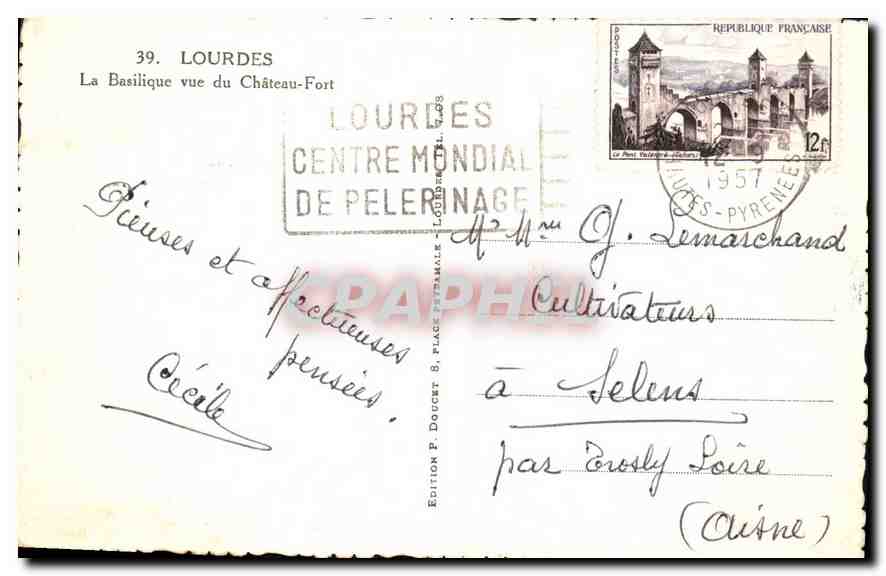 39. LOURDES
La Basilique vue du Château-Fort
LOURDES
CENTRE MONDIAL
DE PELERINAGE
REPUBLIQUE FRANÇAISE
POSTES
Le Pont Valentré (Cahors)
12f
1957
HAUTES-PYRENEES
Pieuses et affectueuses
pensées.
Cécile
EDITION P. DOUCET 8, PLACE PEYRAMALE - LOURDES TÉL. 7.08
CPAPHIL
Mr Mme G. Lemarchand
Cultivateurs
à Selens
par Trosly Loire
(Aisne)